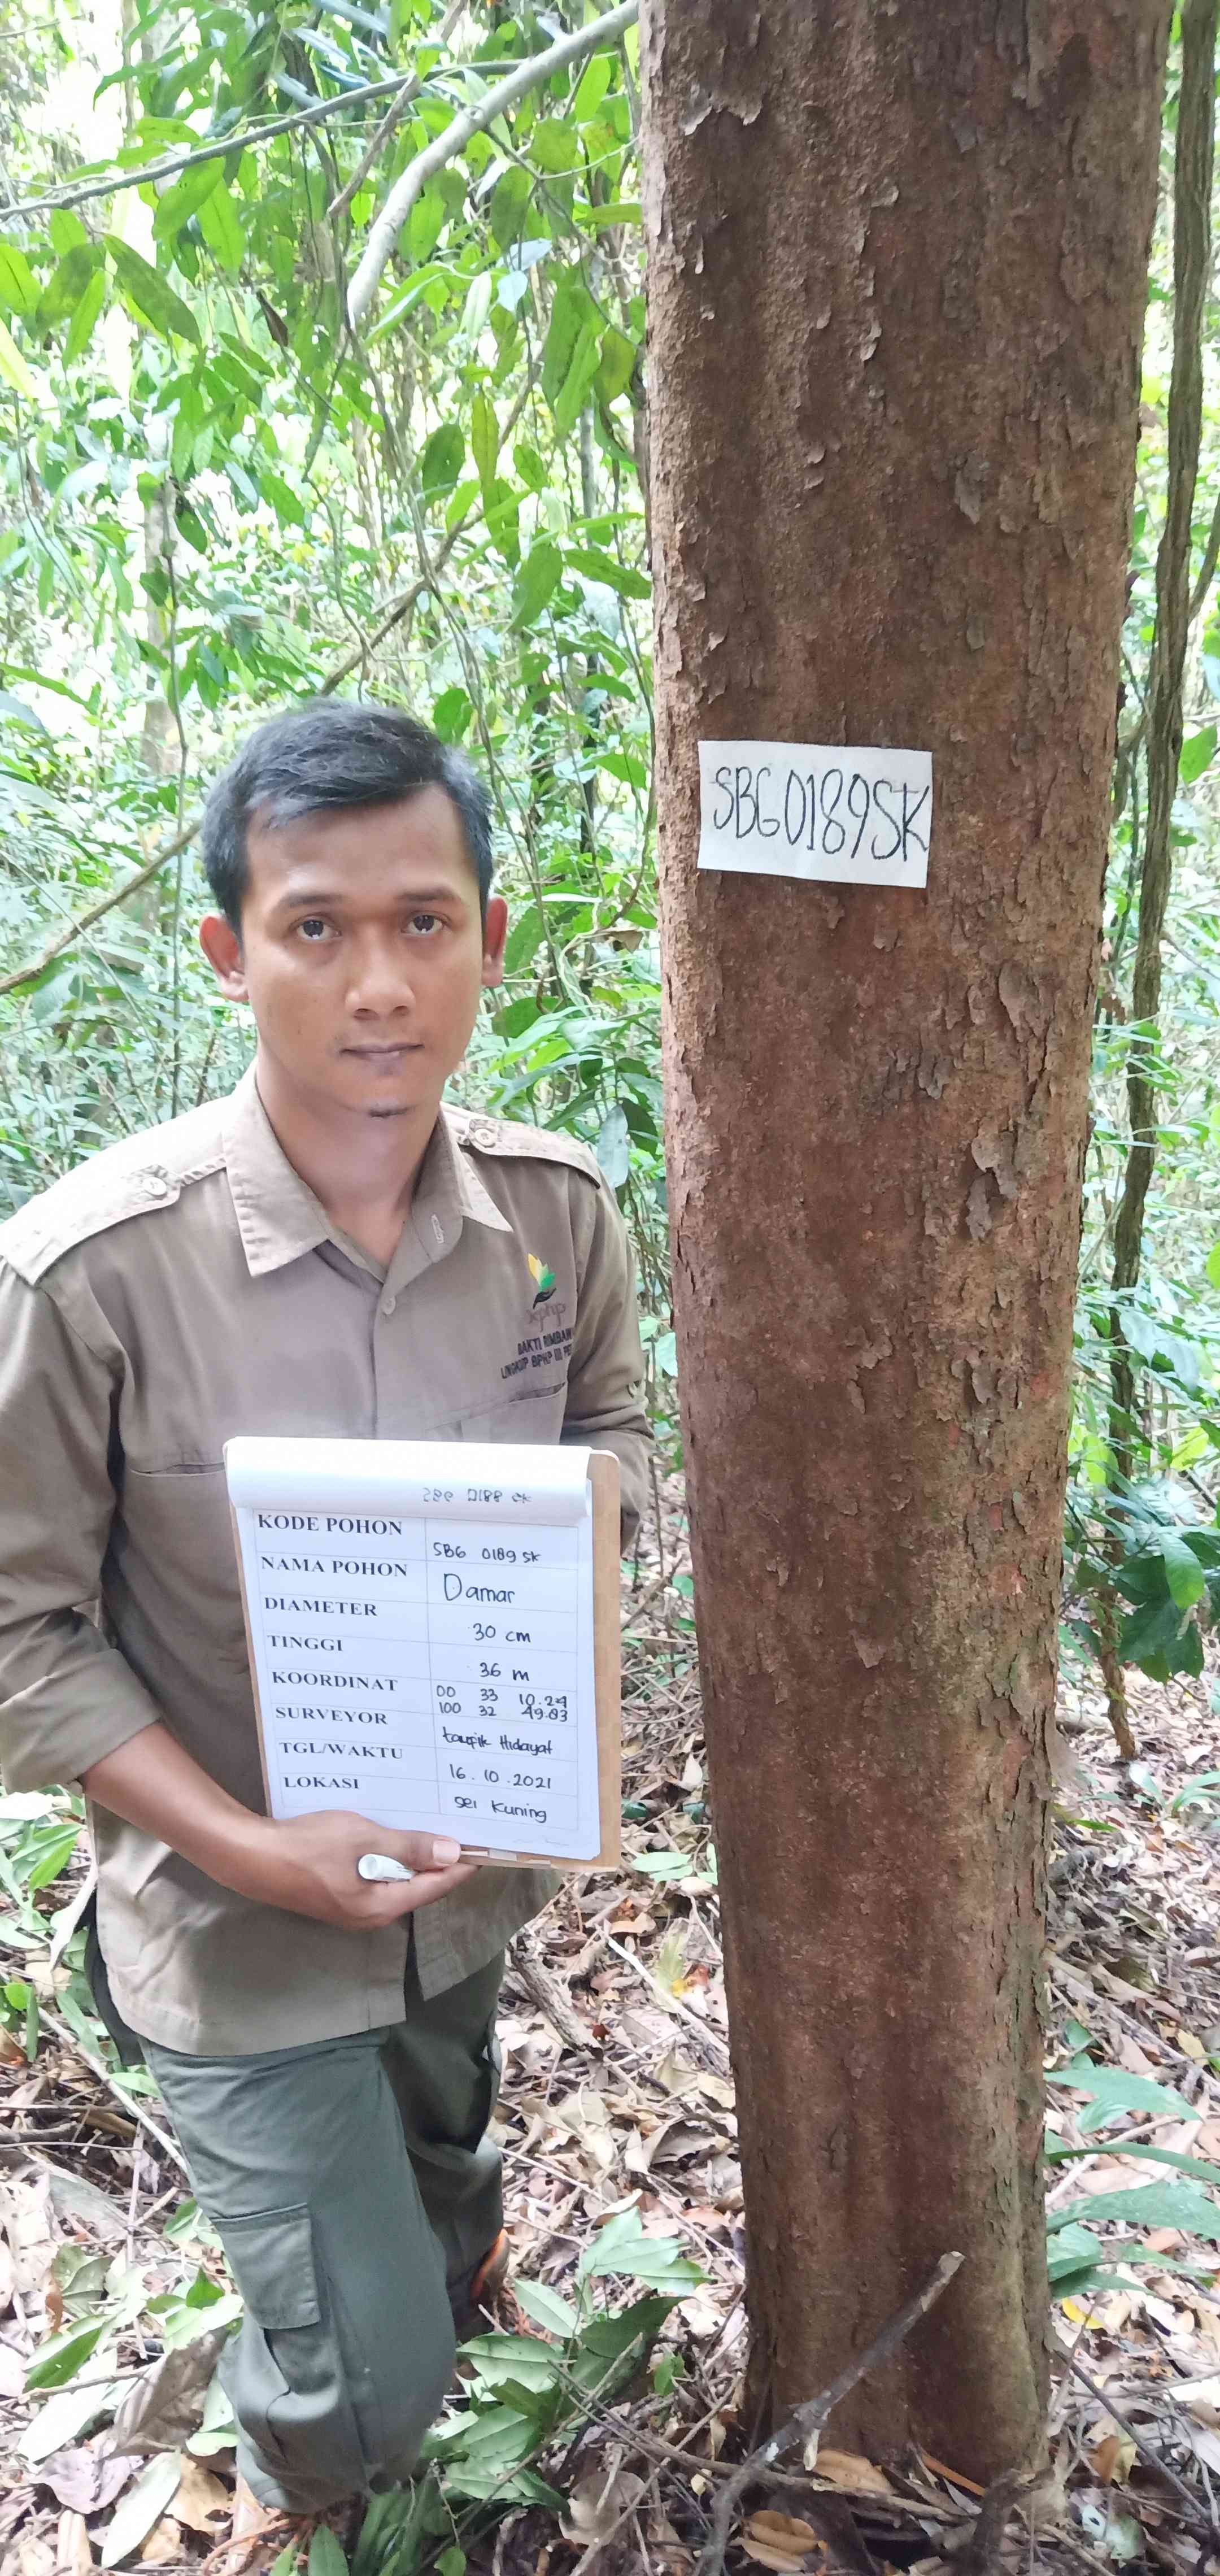 SBG 0189 SK
xphp
BAKTI RIMBAWAN
LINGKUP BPHP III
KODE POHON SBG 0189 SK
NAMA POHON Damar
DIAMETER 30 cm
TINGGI 36 m
KOORDINAT 00 33 10.24
100 32 49.83
SURVEYOR taufik Hidayat
TGL/WAKTU 16.10.2021
LOKASI sei Kuning